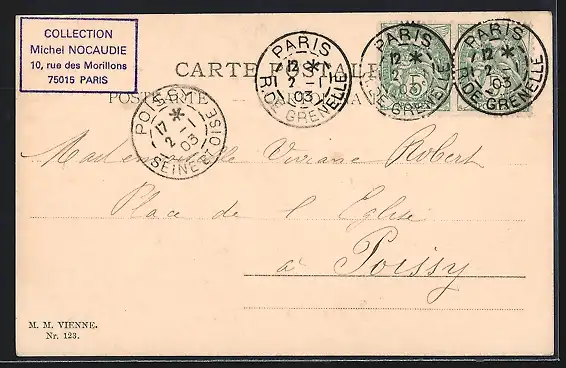 COLLECTION
Michel NOCAUDIE
10, rue des Morillons
75015 PARIS
CARTE POSTALE
POSTKARTE
PARIS
12 *
2 -1
03
R. DE GRENELLE
PARIS
12 *
2
03
R. DE GRENELLE
PARIS
12 *
2
03
R. DE GRENELLE
5
POISSY
17 *
2 -1
03
SEINE ET OISE
Mademoiselle Viviane Robert
Place de l'Eglise
à Poissy
M. M. VIENNE.
Nr. 123.